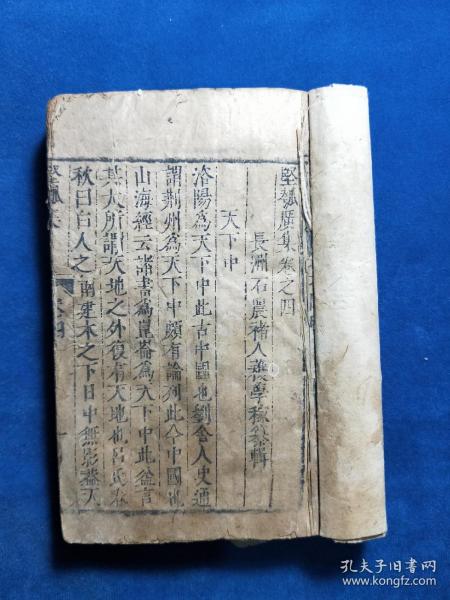 堅瓠廣集卷之四
長洲石農褚人穫學稼纂輯
天下中
洛陽為天下中此古中國也劉會人史通
謂荆州為天下中頗有論列此今中國也
山海經云諸書為崑崙為天下中此益言
其大所謂天地之外復有天地也呂氏春
秋曰白人之南建木之下日中無影蓋天
堅瓠
卷四
孔夫子旧书网
www.kongfz.com